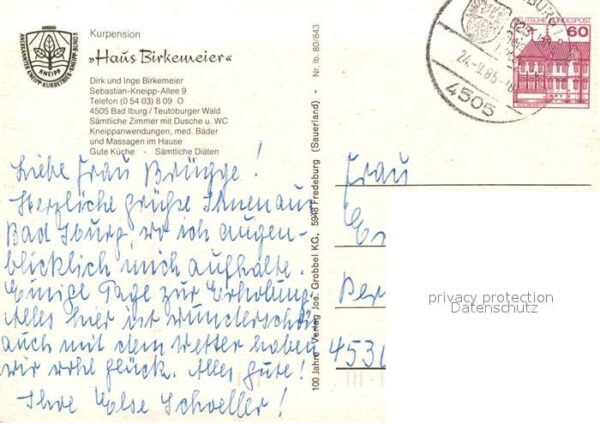 ANERKANNTER KNEIPP-KURBETRIEB • KNEIPP-BUND
KNEIPP
Kurpension
»Haus Birkemeier«
Dirk und Inge Birkemeier
Sebastian-Kneipp-Allee 9
Telefon (0 54 03) 8 09 0
4505 Bad Iburg / Teutoburger Wald
Sämtliche Zimmer mit Dusche u. WC
Kneippanwendungen, med. Bäder
und Massagen im Hause
Gute Küche - Sämtliche Diäten
Liebe Frau Brügge!
Herzliche Grüße Ihnen aus
Bad Iburg, wo ich augen-
blicklich mich aufhalte.
Einige Tage zur Erholung.
Alles hier ist wunderschön
auch mit dem Wetter haben
wir wohl Glück. Alles Gute!
Ihre Else Schoeller!
100 Jahre - Verlag Jos. Grobbel KG, 5948 Fredeburg (Sauerland) - Nr. Ib. 80/843
DEUTSCHE BUNDESPOST
60
24.-9.85
4505
Frau
Ber
453
privacy protection
Datenschutz